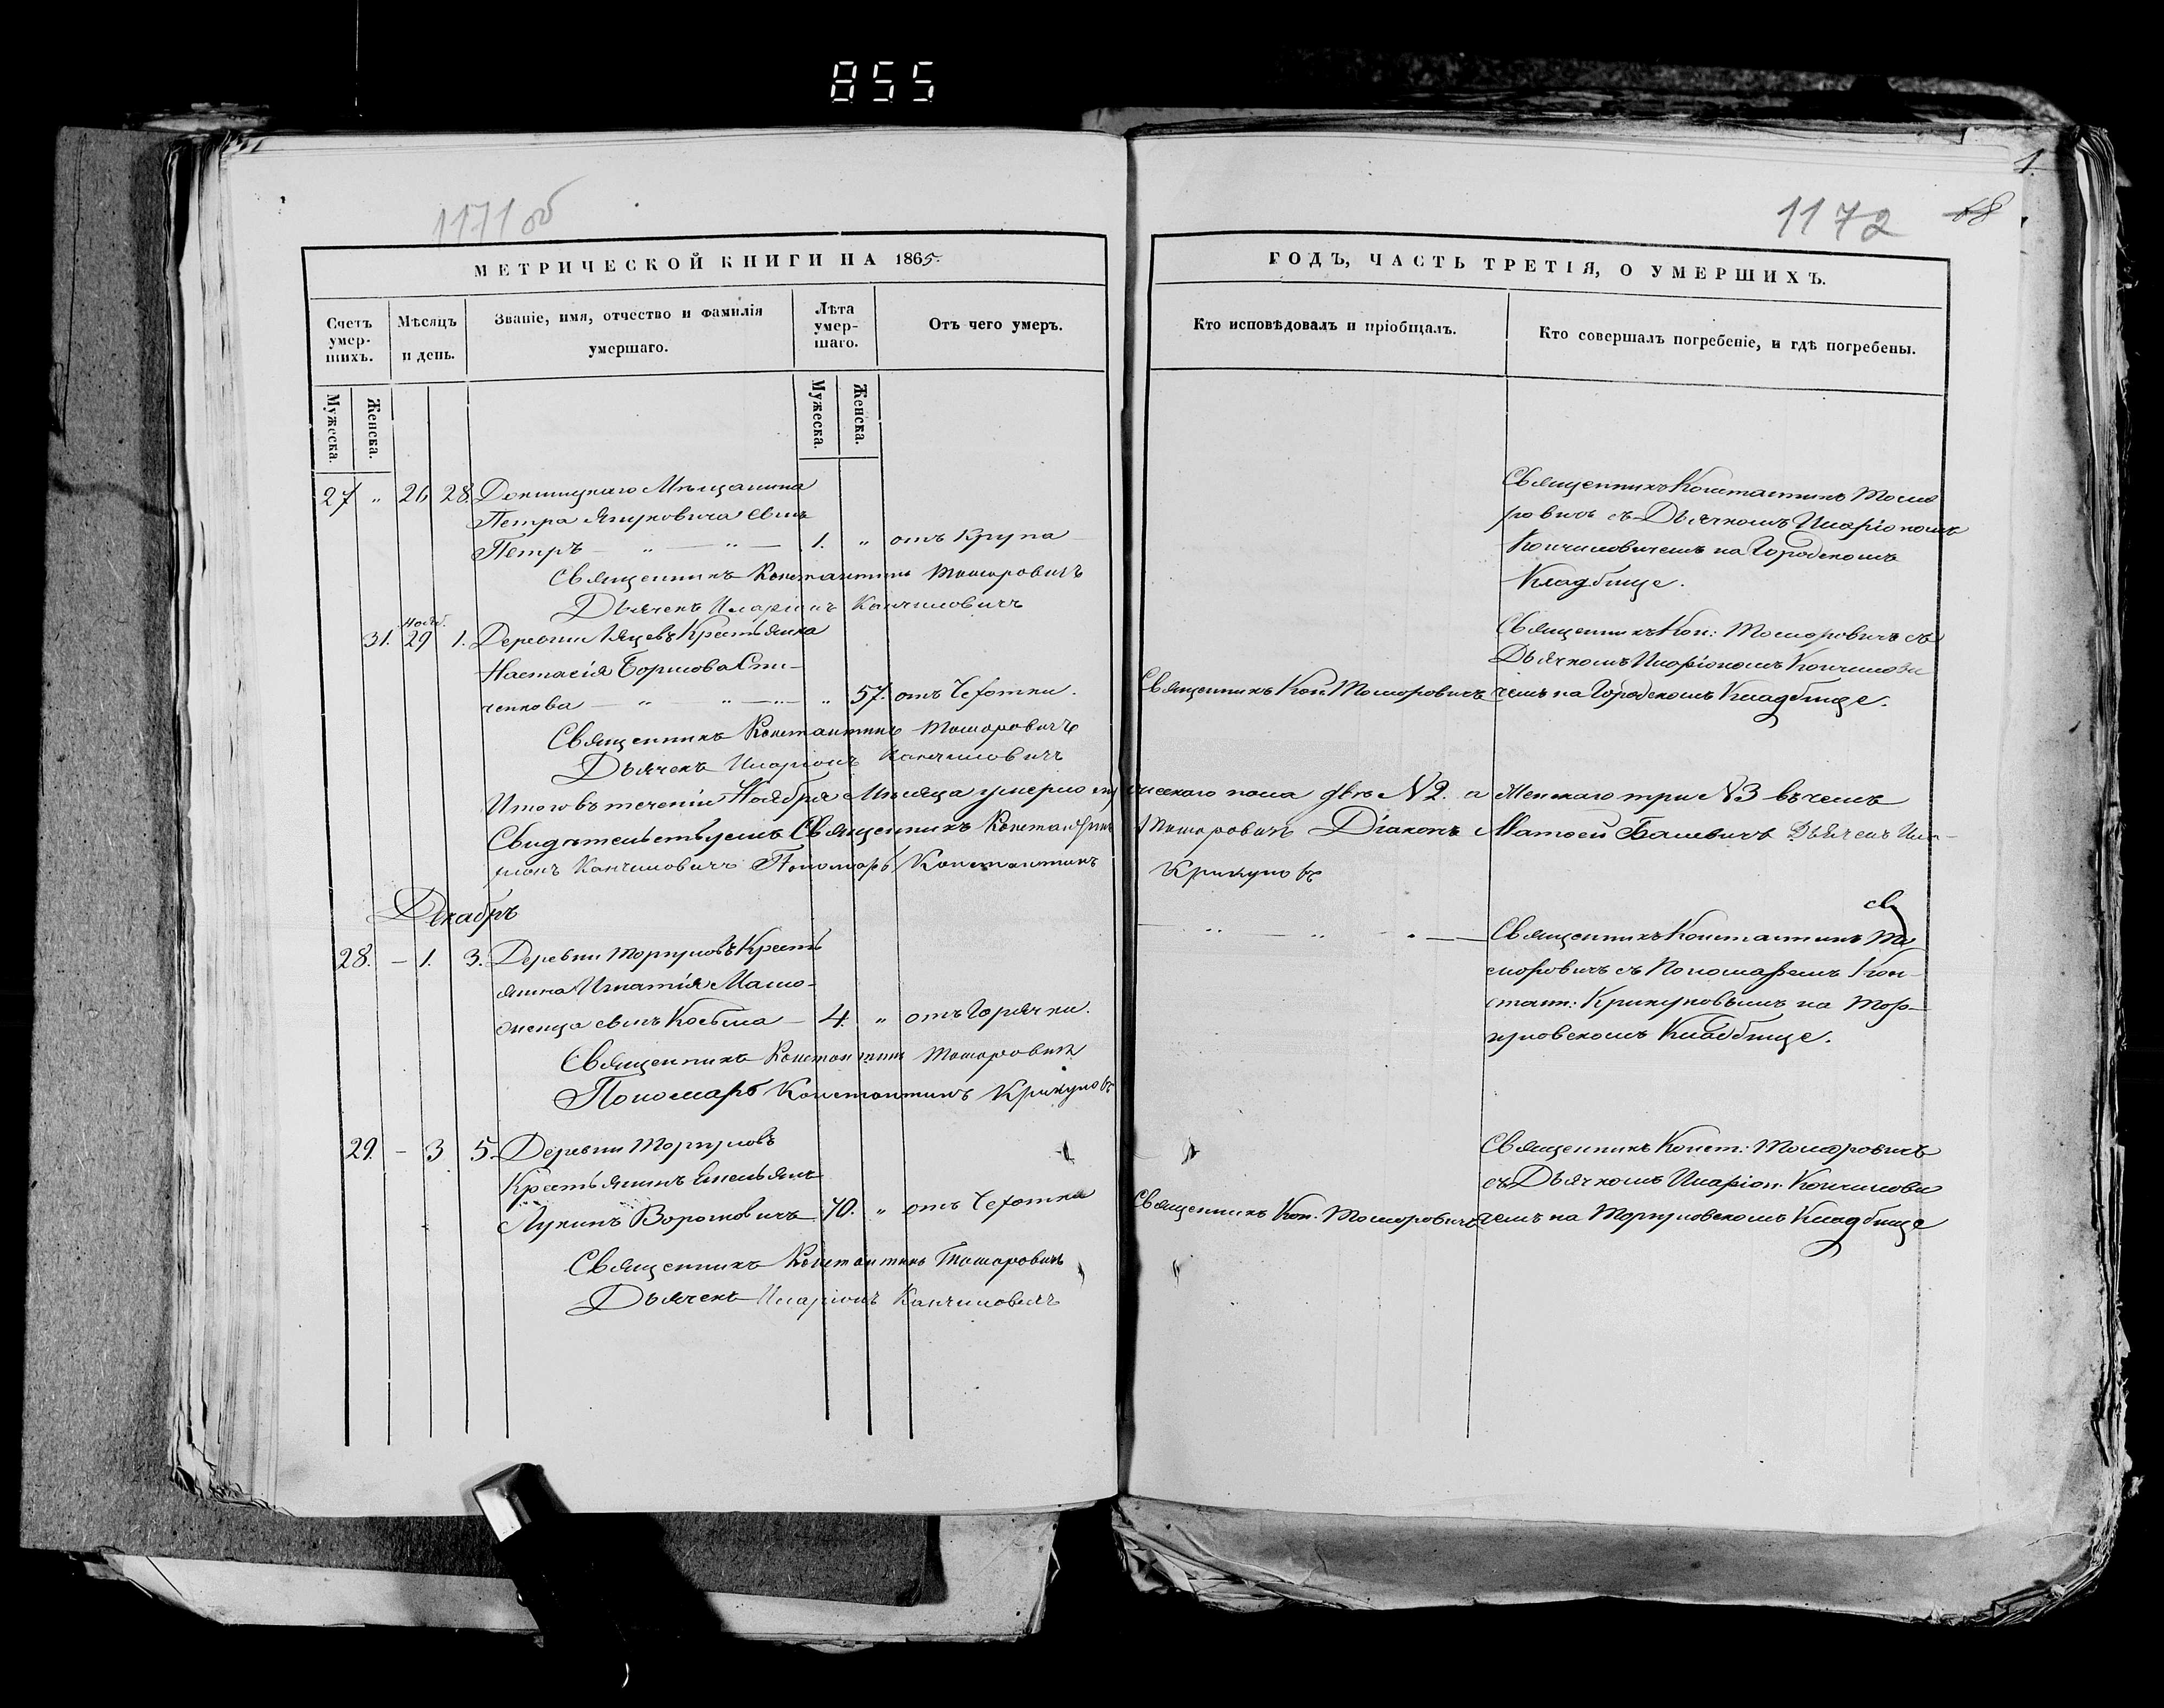 855
1171 об
1172
68
1.
МЕТРИЧЕСКОЙ КНИГИ НА 1865
ГОДЪ, ЧАСТЬ ТРЕТІЯ, О УМЕРШИХЪ.
Счетъ умер-
шихъ.
Мѣсяцъ
и день.
Званіе, имя, отчество и фамилія
умершаго.
Лѣта
умер-
шаго.
Отъ чего умеръ.
Кто исповѣдовалъ и пріобщалъ.
Кто совершалъ погребеніе, и гдѣ погребены.
Мужеска.
Женска.
Мужеска.
Женска.
27 " 26 28. Докшицкаго Мѣщанина
Петра сынъ
Петръ — " — " — 1. " отъ Крупа
Священникъ Константинъ Томаровичъ
Дьячекъ Иларіонъ Канчиловичъ
Священникъ Константинъ Тома
ровичъ съ Дьячкомъ Иларіономъ
Кончиловичемъ на Городскомъ
Кладбище.
Нояб.
31. 29 1. Деревни Крестьянка
Настасія Борисова Спи-
ченкова — " " — " — " 57. отъ Чехотки.
Священникъ Константинъ Томаровичъ
Дьячекъ Иларіонъ Канчиловичъ
Священникъ Кон. Томаровичъ
Священникъ Кон: Томаровичъ съ
Дьячкомъ Иларіономъ Кончилови
чемъ на Городскомъ Кладбище.
Итого въ теченіи Ноября Мѣсяца умерло мужескаго пола два №2. а Женскаго три №3 въ чемъ
Свидѣтельствуемъ Священникъ Константинъ Томаровичъ Діаконъ Матвей Балевичъ Дьячекъ Ила-
ріонъ Канчиловичъ Пономарь Константинъ Крикуновъ
Декабрь
28. - 1. 3. Деревни Торгуновъ Кресть
янина Игнатія
сынъ Косьма — 4. " отъ Горячки.
Священникъ Константинъ Томаровичъ
Пономарь Константинъ Крикуновъ
— " — " — —
Священникъ Константинъ То
маровичъ съ Пономаремъ Кон-
стант: Крикуновымъ на Тор-
гуновскомъ Кладбище.
29. - 3 5. Деревни Торгуновъ
Крестьянинъ Емельянъ
Лукинъ Воротовичъ 70. " отъ Чехотки
Священникъ Константинъ Томаровичъ
Дьячекъ Иларіонъ Канчиловичъ
Священникъ Кон. Томаровичъ
Священникъ Конст: Томаровичъ
съ Дьячкомъ Иларіон. Кончилови
чемъ на Торгуновскомъ Кладбище